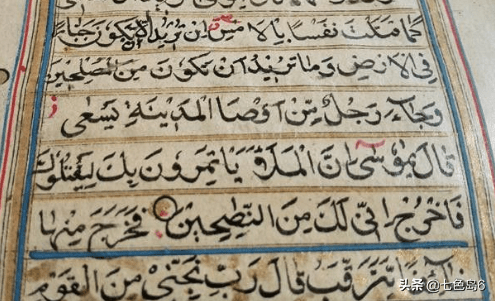 كما قتلت نفسا بالامس ان تريد الا ان تكون جبارا
فى الارض وما تريد ان تكون من المصلحين
وجاء رجل من اقصا المدينة يسعى
قال يموسى ان الملا ياتمرون بك ليقتلوك
فاخرج انى لك من النصحين فخرج منها
يترقب قال رب نجنى من القوم
头条 @七色岛6